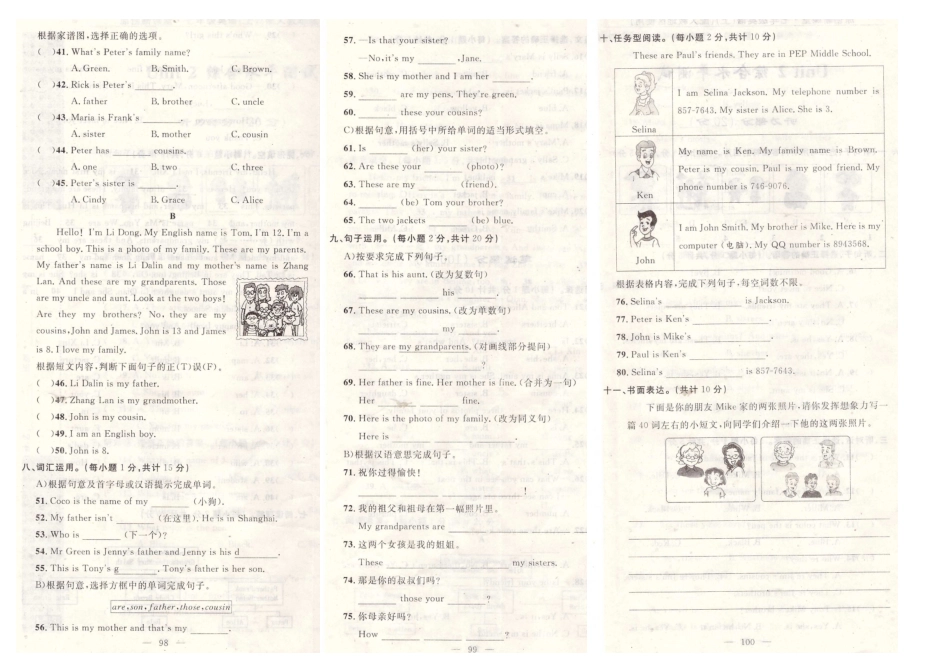 根据家谱图,选择正确的选项。
(    )41. What's Peter's family name?
A. Green.    B. Smith.    C. Brown.
(    )42. Rick is Peter's ______.
A. father    B. brother    C. uncle
(    )43. Maria is Frank's ______.
A. sister    B. mother    C. cousin
(    )44. Peter has ______ cousins.
A. one    B. two    C. three
(    )45. Peter's sister is ______.
A. Cindy    B. Grace    C. Alice
B
Hello! I'm Li Dong. My English name is Tom. I'm 12. I'm a
school boy. This is a photo of my family. These are my parents.
My father's name is Li Dalin and my mother's name is Zhang
Lan. And these are my grandparents. Those
are my uncle and aunt. Look at the two boys!
Are they my brothers? No, they are my
cousins, John and James. John is 13 and James
is 8. I love my family.
根据短文内容,判断下面句子的正(T)误(F)。
(    )46. Li Dalin is my father.
(    )47. Zhang Lan is my grandmother.
(    )48. John is my cousin.
(    )49. I am an English boy.
(    )50. John is 8.
八、词汇运用。(每小题 1 分,共计 15 分)
A)根据句意及首字母或汉语提示完成单词。
51. Coco is the name of my ______ (小狗).
52. My father isn't ______ (在这里). He is in Shanghai.
53. Who is ______ (下一个)?
54. Mr Green is Jenny's father and Jenny is his d______.
55. This is Tony's g______. Tony's father is her son.
B)根据句意,选择方框中的单词完成句子。
are, son, father, those, cousin
56. This is my mother and that's my ______.
— 98 —
57. —Is that your sister?
—No, it's my ______, Jane.
58. She is my mother and I am her ______.
59. ______ are my pens. They're green.
60. ______ these your cousins?
C)根据句意,用括号中所给单词的适当形式填空。
61. Is ______ (her) your sister?
62. Are these your ______ (photo)?
63. These are my ______ (friend).
64. ______ (be) Tom your brother?
65. The two jackets ______ (be) blue.
九、句子运用。(每小题 2 分,共计 20 分)
A)按要求完成下列句子。
66. That is his aunt. (改为复数句)
______ ______ his ______.
67. These are my cousins. (改为单数句)
______ ______ my ______.
68. They are my grandparents. (对画线部分提问)
______ ______ ______?
69. Her father is fine. Her mother is fine. (合并为一句)
Her ______ ______ fine.
70. Here is the photo of my family. (改为同义句)
Here is ______ ______ ______.
B)根据汉语意思完成句子。
71. 祝你过得愉快!
______ ______ ______ ______!
72. 我的祖父和祖母在第一幅照片里。
My grandparents are ______ ______ ______ ______.
73. 这两个女孩是我的姐姐。
These ______ ______ ______ my sisters.
74. 那是你的叔叔们吗?
______ those your ______?
75. 你母亲好吗?
How ______ ______ ______?
— 99 —
十、任务型阅读。(每小题 2 分,共计 10 分)
These are Paul's friends. They are in PEP Middle School.
Selina
I am Selina Jackson. My telephone number is
857-7643. My sister is Alice. She is 3.
Ken
My name is Ken. My family name is Brown.
Peter is my cousin. Paul is my good friend. My
phone number is 746-9076.
John
I am John Smith. My brother is Mike. Here is my
computer (电脑). My QQ number is 8943568.
根据表格内容,完成下列句子,每空词数不限。
76. Selina's ______ is Jackson.
77. Peter is Ken's ______.
78. John is Mike's ______.
79. Paul is Ken's ______.
80. Selina's ______ is 857-7643.
十一、书面表达。(共计 10 分)
下面是你的朋友 Mike 家的两张照片,请你发挥想象力写一
篇 40 词左右的小短文,向同学们介绍一下他的这两张照片。
— 100 —